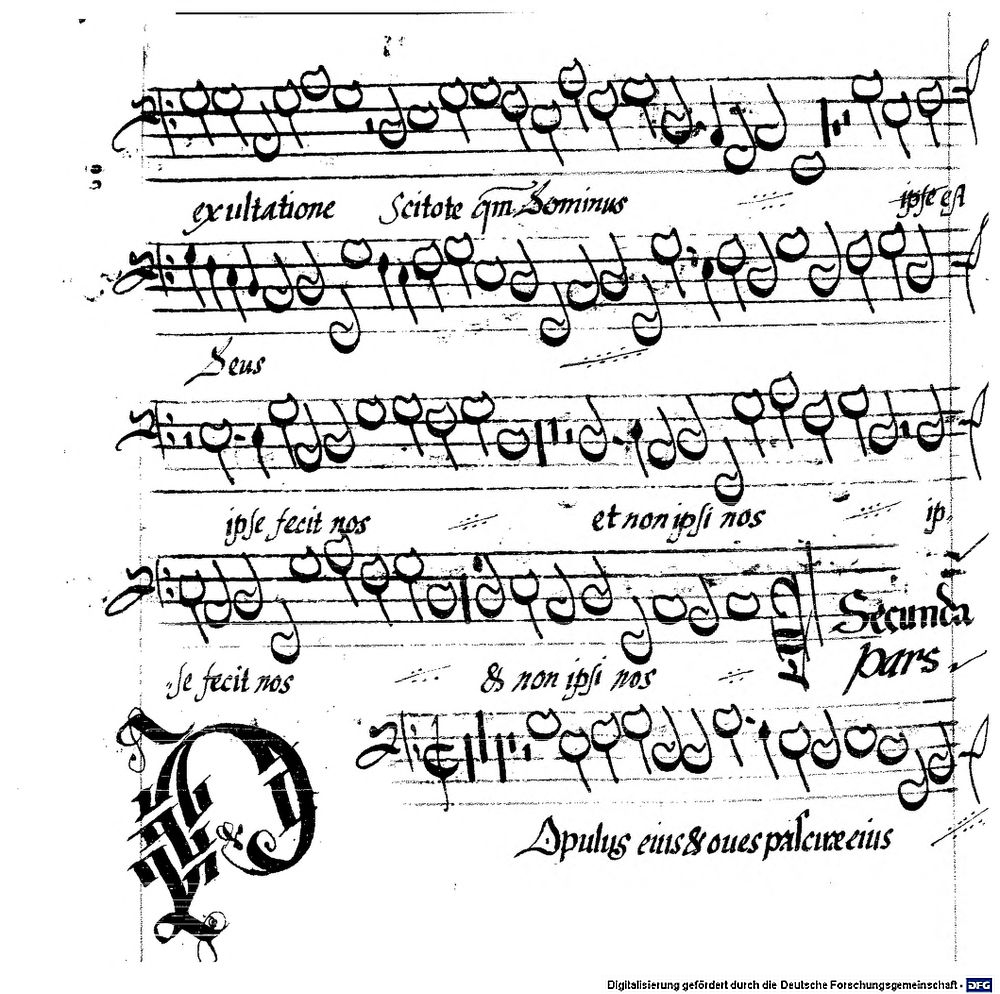 exultatione Scitote qm Dominus ipse est
Deus
ipse fecit nos et non ipsi nos ip
se fecit nos & non ipsi nos
Secunda
pars
P
Opulus eius & oues pascuæ eius
Digitalisierung gefördert durch die Deutsche Forschungsgemeinschaft - DFG